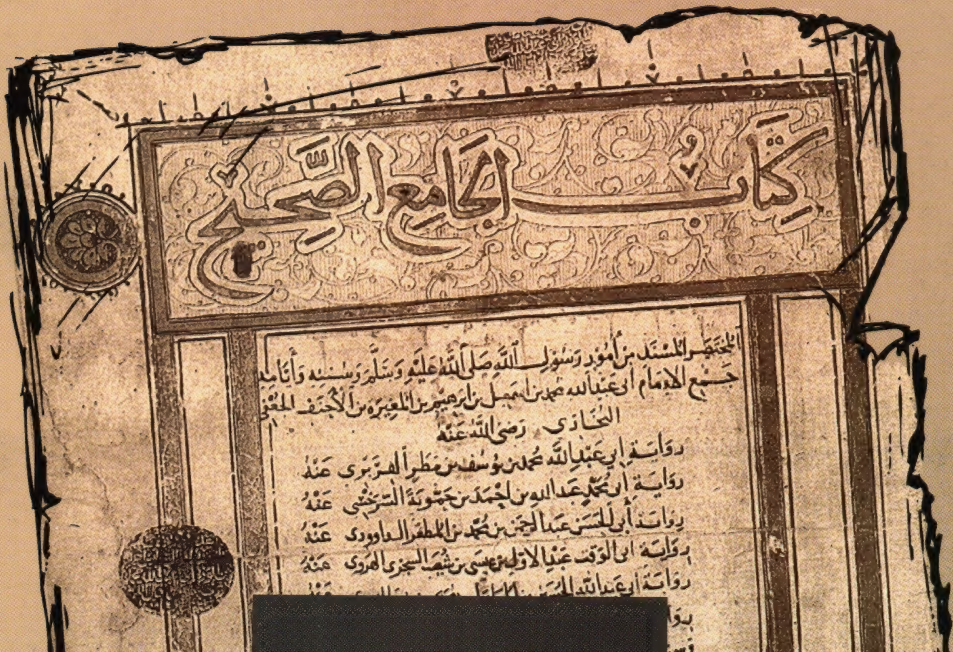 كِتَابُ الجَامِعِ الصَّحِيحِ
المختصر المسند من أمور رسول الله صلى الله عليه وسلم وسننه وأيامه
جمع الإمام أبي عبد الله محمد بن إسمعيل بن إبرهيم بن المغيرة بن الأحنف الجعفي
البخاري رضي الله عنه
رواية أبي عبد الله محمد بن يوسف بن مطر الفربري عنه
رواية أبي محمد عبد الله بن أحمد بن حمّوية السرخسي عنه
رواية أبي الحسن عبد الرحمن بن محمد بن المظفر الداوودي عنه
رواية أبي الوقت عبد الأول بن عيسى بن شعيب السجزي الهروي عنه
رواية أبي عبد الله الحسين بن